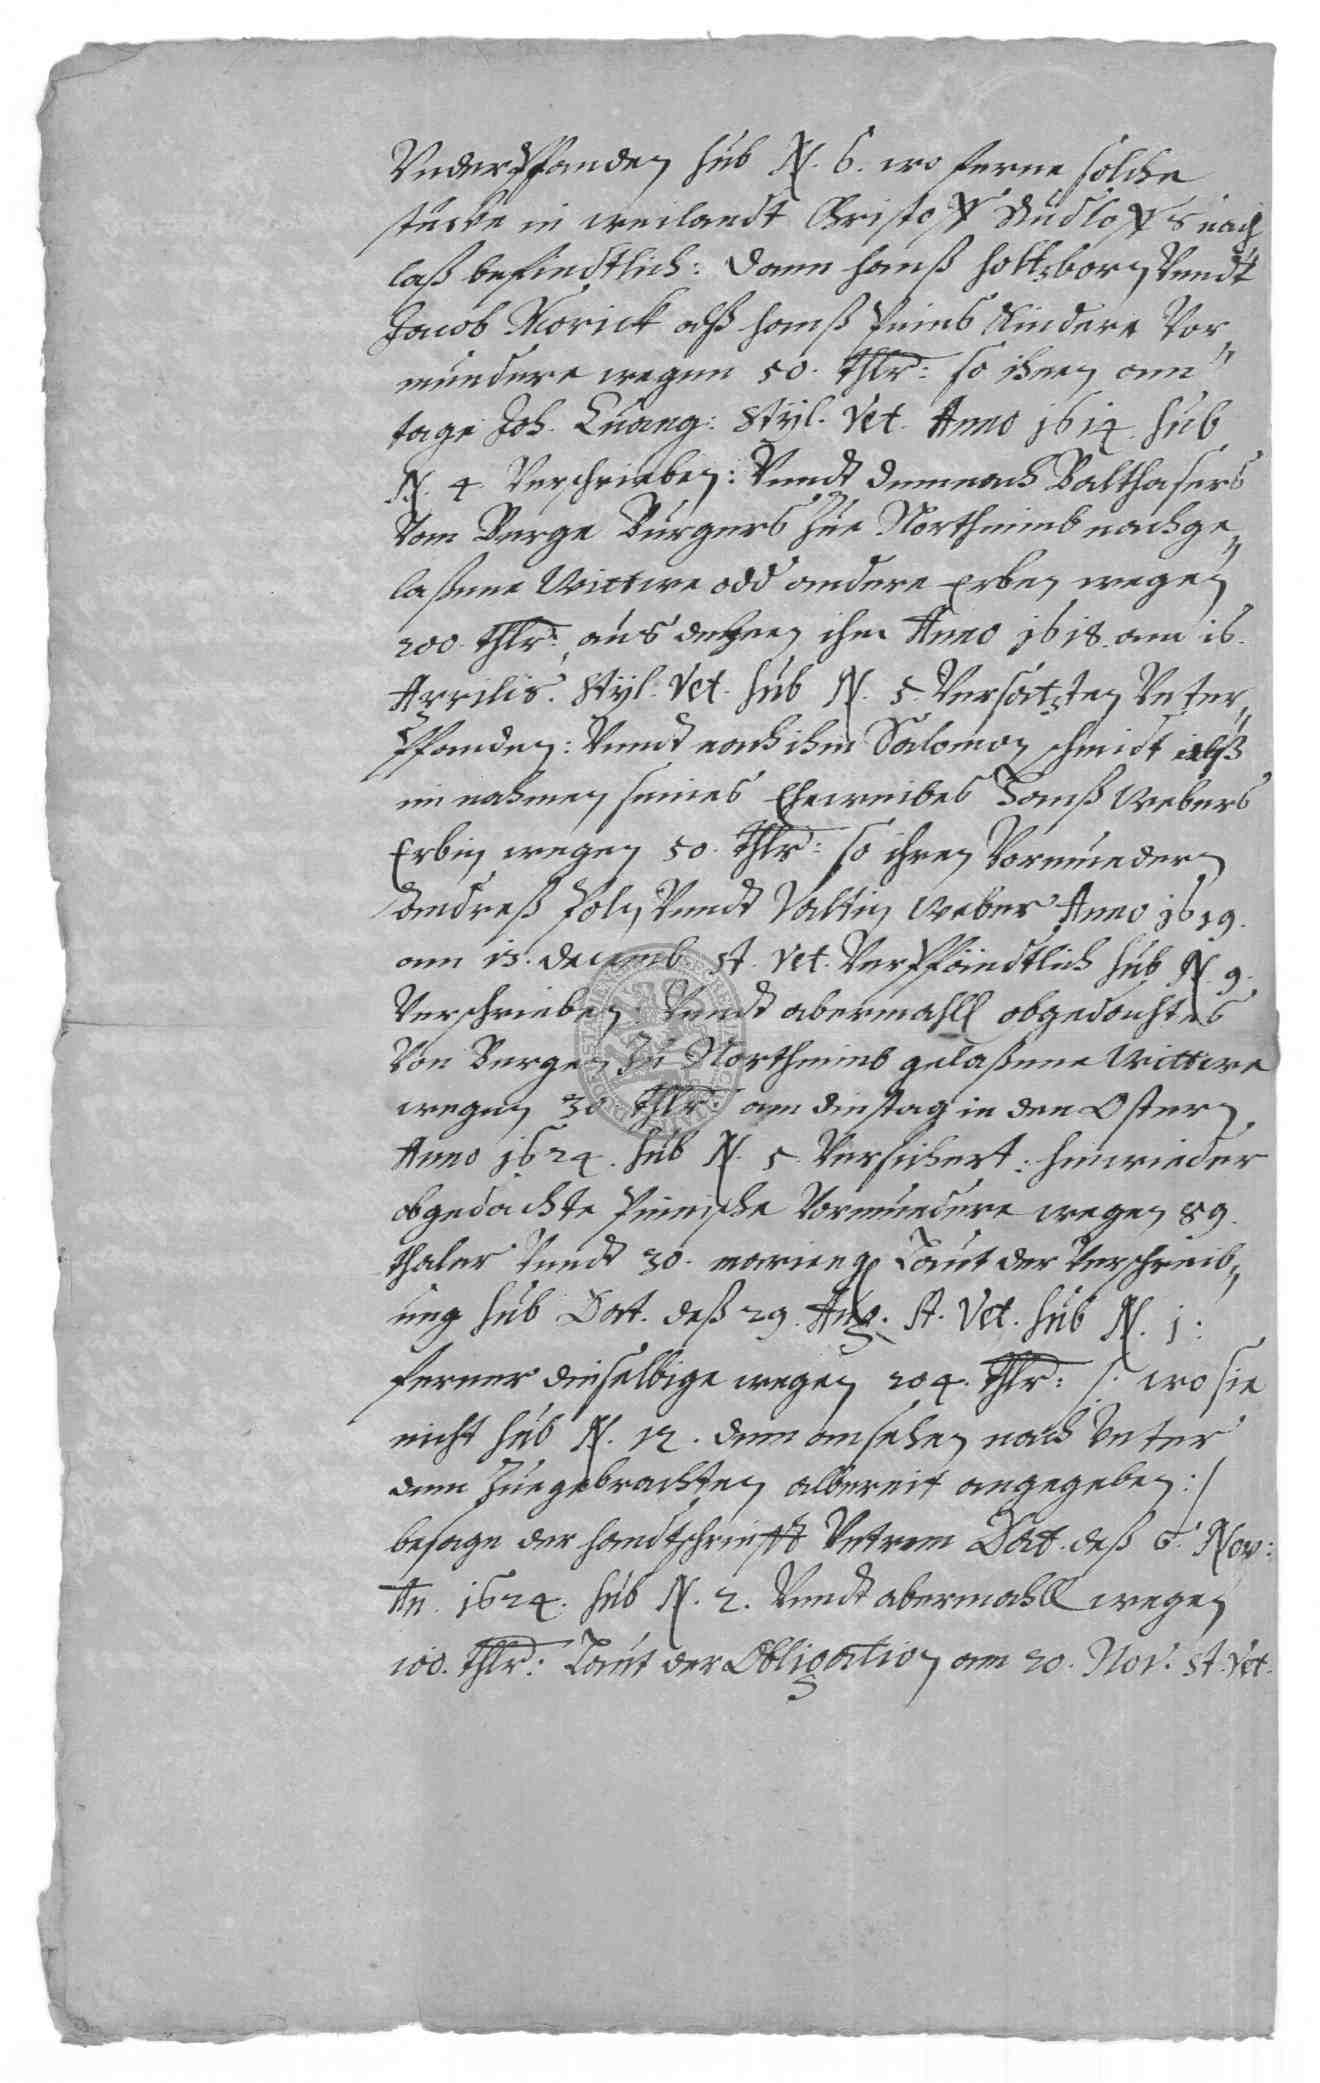 Vnderpfanden sub N. 6. wo ferne solche
stücke in weilandt Christoff Rudloffs nach
laß befindtlich: dann Hanß Holtzborn Vndt
Jacob Morick alß Hanß Peines Kindere Vor„
mundere wegen 50. Thlr: so ihnen am
tage Joh. Euang: Styl. Vet. Anno 1614. sub
N. 4 Verschrieben: Vndt demnach Balthasers
Vom Berge Bürgers Zue Northeimb nachge„
laßene Wittwe odd andere Erben wegen
200. Thlr: aus denen ihm Anno 1618. am 16.
Aprilis. Styl. Vet. sub N. 5 Versatzten Vnter„
pfanden: Vndt nach ihm Salomon Schmidt alß
im nahmen seines Eheweibes Hanß Webers
Erbin wegen 50. Thlr: so ihren Vormundern
Andreß Vndt Valtin Weber Anno 1619.
am 13. Decemb st. Vet. Verpfändtlich sub N. 9.
Verschrieben: Vndt abermahll obgedachtes
Von Bergen Zu Northeimb gelaßene Wittwe
wegen 30 Thlr: am dinstag in den Ostern
Anno 1624. sub N. 5 Versichert: hinwieder
obgedachte Peinische Vormundere wegen 89.
thaler Vndt 30. marieng Laut der Verschreib„
ung sub Dat. deß 29. Aug. st. Vet. sub N. 1:
ferner dieselbige wegen 204. Thlr: /: wo sie
nicht sub N. 12. dem ansehen nach Vnter
dem Zuegebrachten albereit angegeben :/
besage der handtschrifft Dat. deß 6. Nov:
An. 1624. sub N. 2. Vndt abermahll wegen
100. Thlr: Laut der Obligation am 20. Nov. st. Vet.